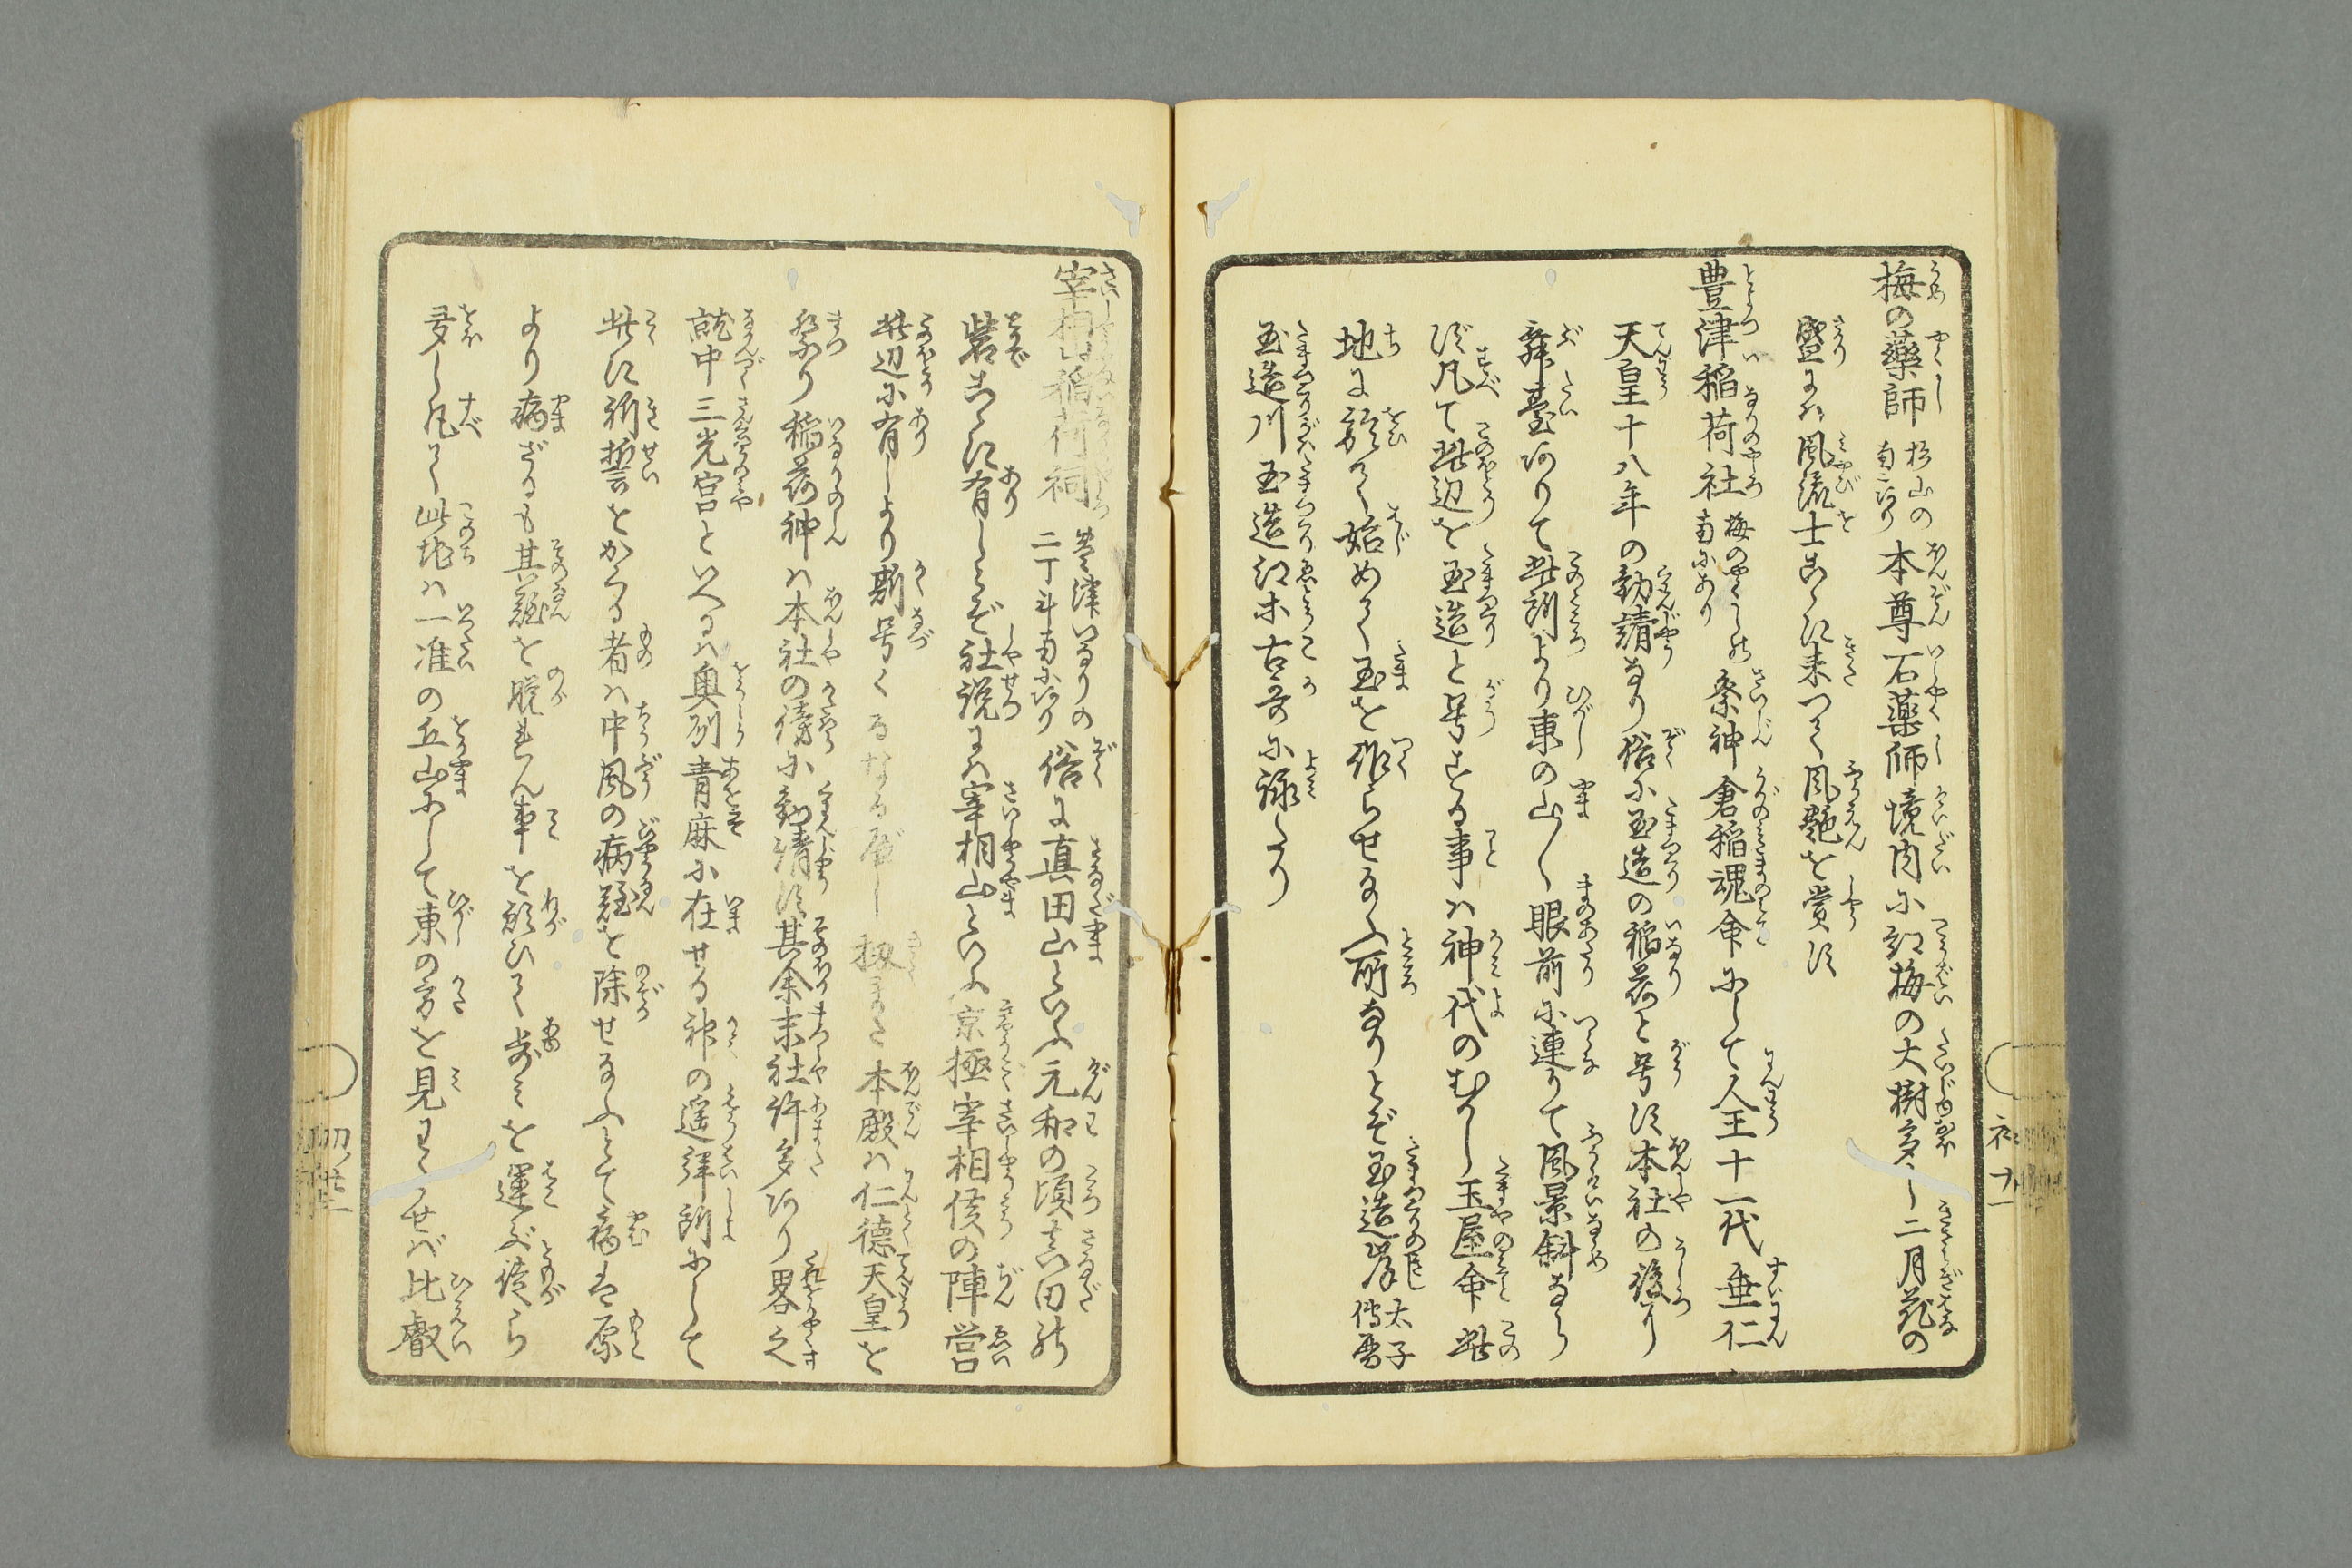 梅の藥師 杉山の南にあり 本尊石藥師境内に紅梅の大樹多し二月花の
盛には風流士こゝに来つて風艶を賞す
豊津稲荷社 梅のやくしの南にあり 祭神倉稲魂命にして人王十一代垂仁
天皇十八年の勧請なり俗に玉造の稲荷と号す本社の後り
舞臺ありて此所より東の山〳〵眼前に連りて風景斜なら
ず凡て此辺を玉造と号する事は神代のむかし玉屋命此
地に於て始めて玉を作らせ給ふ所なりとぞ玉造岸 太子傳暦
玉造川玉造江等古哥に詠たり
宰相山稲荷祠 豊津いなりの二丁斗南にあり 俗に真田山といふ元和の頃真田の
砦こゝに有しとぞ社説には宰相山といふ京極宰相侯の陣営
此辺に有しより斯号くるなるべし 扨また本殿は仁徳天皇を
祭り稲荷神は本社の傍に勧請す其余末社許多あり畧之
就中三光宮といへるは奥州青麻に在せる神の遥拝所にして
此に祈誓をかくる者は中風の病難を除せ給ふとて病に原
より病ざるも其難を脱れん事を願ひて歩みを運ぶ徒ら
多し凡て此地は一准の丘山にして東の方を見わたせば比叡